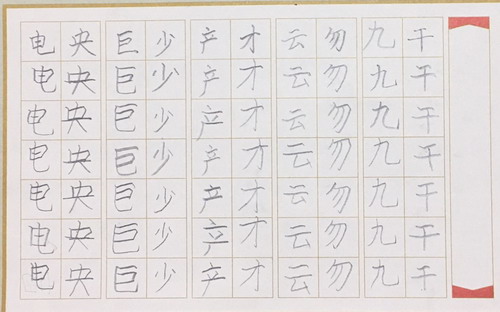 电央巨少产才云勿九干
电央巨少产才云勿九干
电央巨少产才云勿九干
电央巨少产才云勿九干
电央巨少产才云勿九干
电央巨少产才云勿九干
电央巨少产才云勿九干